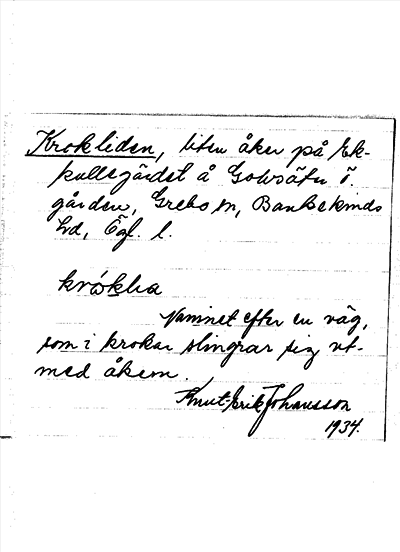 Krokliden, liten åker på Ek-
kullegärdet å Golvsäter Ö.
gården, Grebo sn, Bankekinds
hd, Ögl. l.
krókla
Namnet efter en väg,
som i krokar slingrar sig ut-
med åkern.
Knut-Erik Johansson
1934.